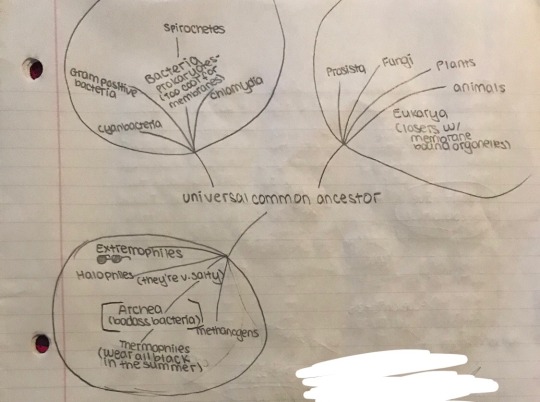 Spirochetes
Bacteria
prokaryotes-
(too cool for
membranes)
Gram positive
bacteria
Chlamydia
cyanbacteria
Protista
Fungi
Plants
animals
Eukarya
(losers w/
membrane
bound organelles)
universal common ancestor
Extremophiles
Halophiles (they're v. salty)
Archea
(badass bacteria)
methanogens
Thermophiles
(wear all black
in the summer)